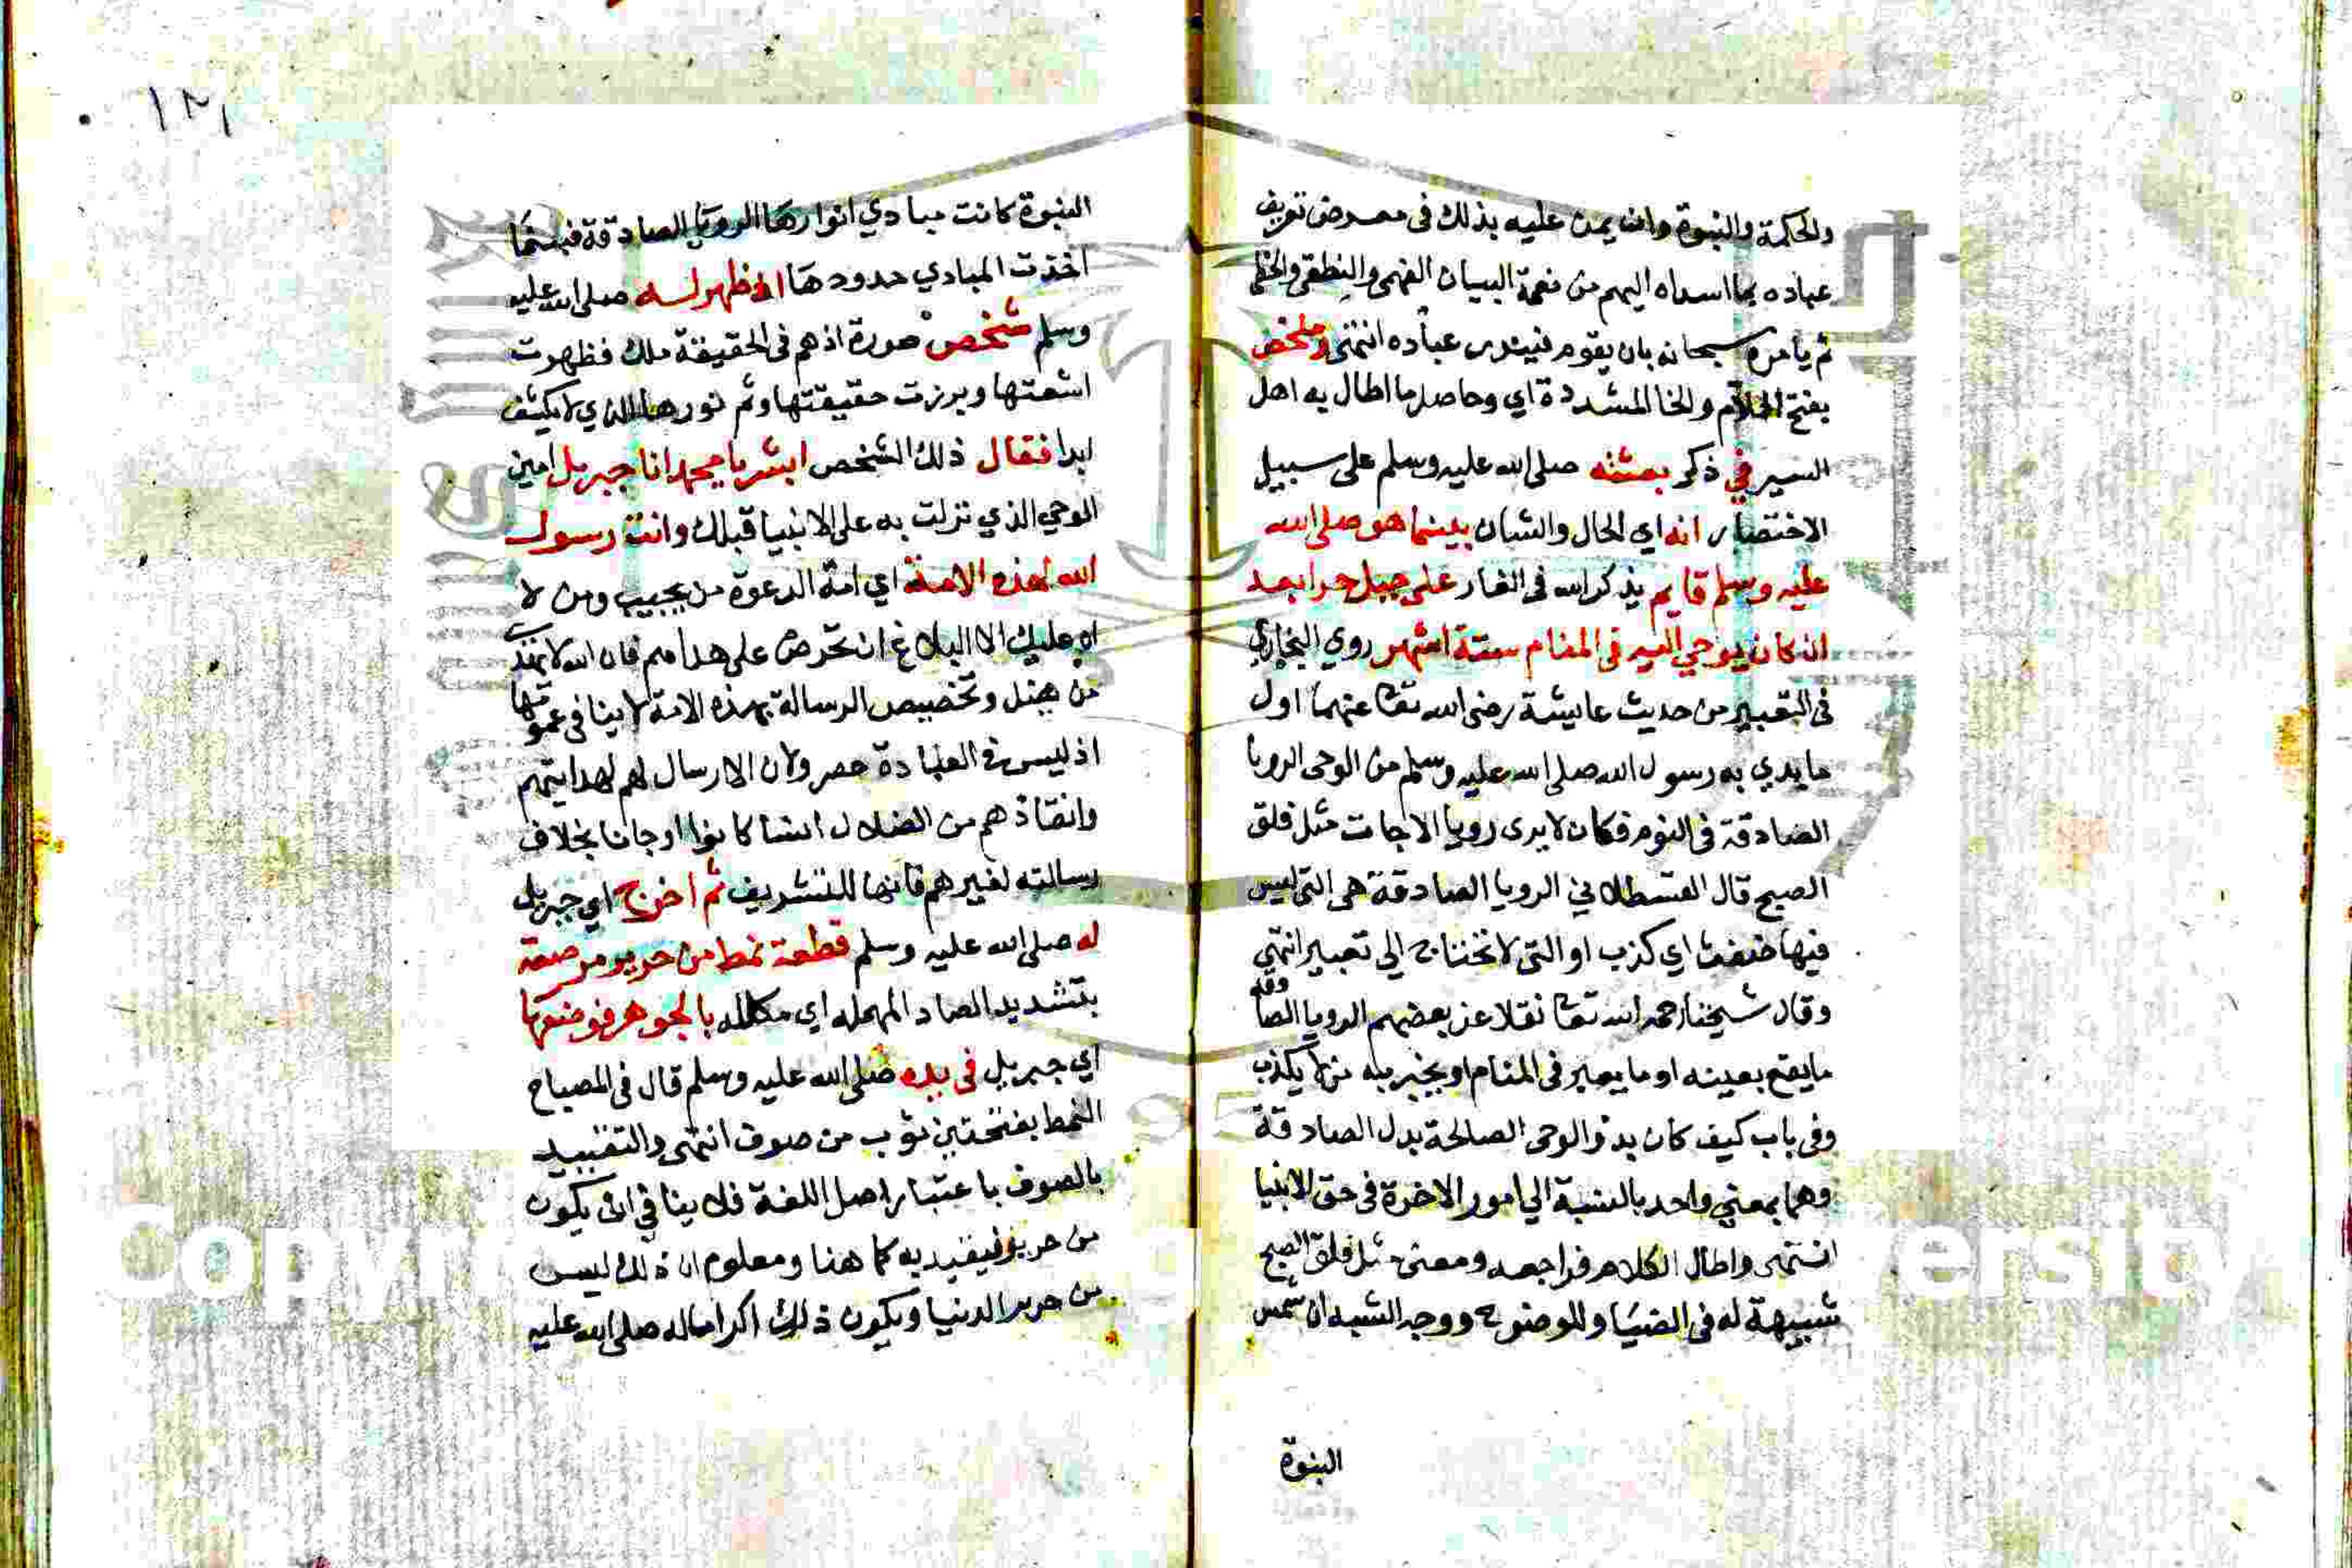 والحكمة والنبوة وان يمن عليه بذلك في معرض تعريف
عباده بما اسداه اليهم من نعمة البيان الفهمي والنطقي والخطي
ثم يامره سبحانه بان يقوم فينذر عباده انتهى وملخص
بفتح اللام والخا المشددة اي وحاصل ما اطال به اهل
السير في ذكر بعثته صلى الله عليه وسلم على سبيل
الاختصار انه اي الحال والشان بينما هو صلى الله
عليه وسلم قايم يذكر الله في الغار على جبل حرا بعد
ان كان يوحي اليه في المنام ستة اشهر روي البخاري
في التعبير من حديث عايشة رضي الله تعا عنهما اول
ما بدي به رسول الله صلى الله عليه وسلم من الوحي الرويا
الصادقة في النوم فكان لا يرى رويا الا جات مثل فلق
الصبح قال القسطلاني الرويا الصادقة هي التي ليس
فيها ضغث اي كذب او التي لا تحتاج الي تعبير انتهي
وقال شيخنا رحمه الله تعا نقلا عن بعضهم الرويا الصادقة
ما يقع بعينه او ما يعبر في المنام او يخبر به من لا يكذب
وفي باب كيف كان بدؤ الوحي الصالحة بدل الصادقة
وهما بمعني واحد بالنسبة الي امور الاخرة في حق الانبيا
انتهى واطال الكلام فراجعه ومعنى مثل فلق الصبح
شبيهة له في الضيا والوضوح ووجه الشبه ان شمس
النبوة
١٢١
النبوة كانت مبادي انوارها الرويا الصادقة فبينما
اخذت المبادي حدودها اذ ظهر له صلى الله عليه
وسلم شخص صورة اذ هم في الحقيقة ملك فظهرت
اشعتها وبرزت حقيقتها وتم نورها الذي لا يكشف
ابدا فقال ذلك الشخص ابشر يا محمد انا جبريل امين
الوحي الذي نزلت به على الانبيا قبلك وانت رسول
الله لهذه الامة اي امة الدعوة من يجيب ومن لا
ان عليك الا البلاغ ان تحرص على هداهم فان الله لا يهدي
من يضل وتخصيص الرسالة بهذه الامة لا ينافي عمومها
اذ ليس في العبادة حصر ولان الارسال لهم لهدايتهم
وانقاذهم من الضلال انسا كانوا او جانا بخلاف
رسالته لغيرهم فانها للتشريف ثم اخرج اي جبريل
له صلى الله عليه وسلم قطعة نمط من حرير مرصعة
بتشديد الصاد المهمله اي مكلله بالجوهر فوضعها
اي جبريل في يده صلى الله عليه وسلم قال في المصباح
النمط بفتحتين ثوب من صوف انتهى والتقييد
بالصوف باعتبار اصل اللغة فلا ينافي ان يكون
من حرير فيقيد به كما هنا ومعلوم ان ذلك ليس
من حرير الدنيا ويكون ذلك اكراما له صلى الله عليه